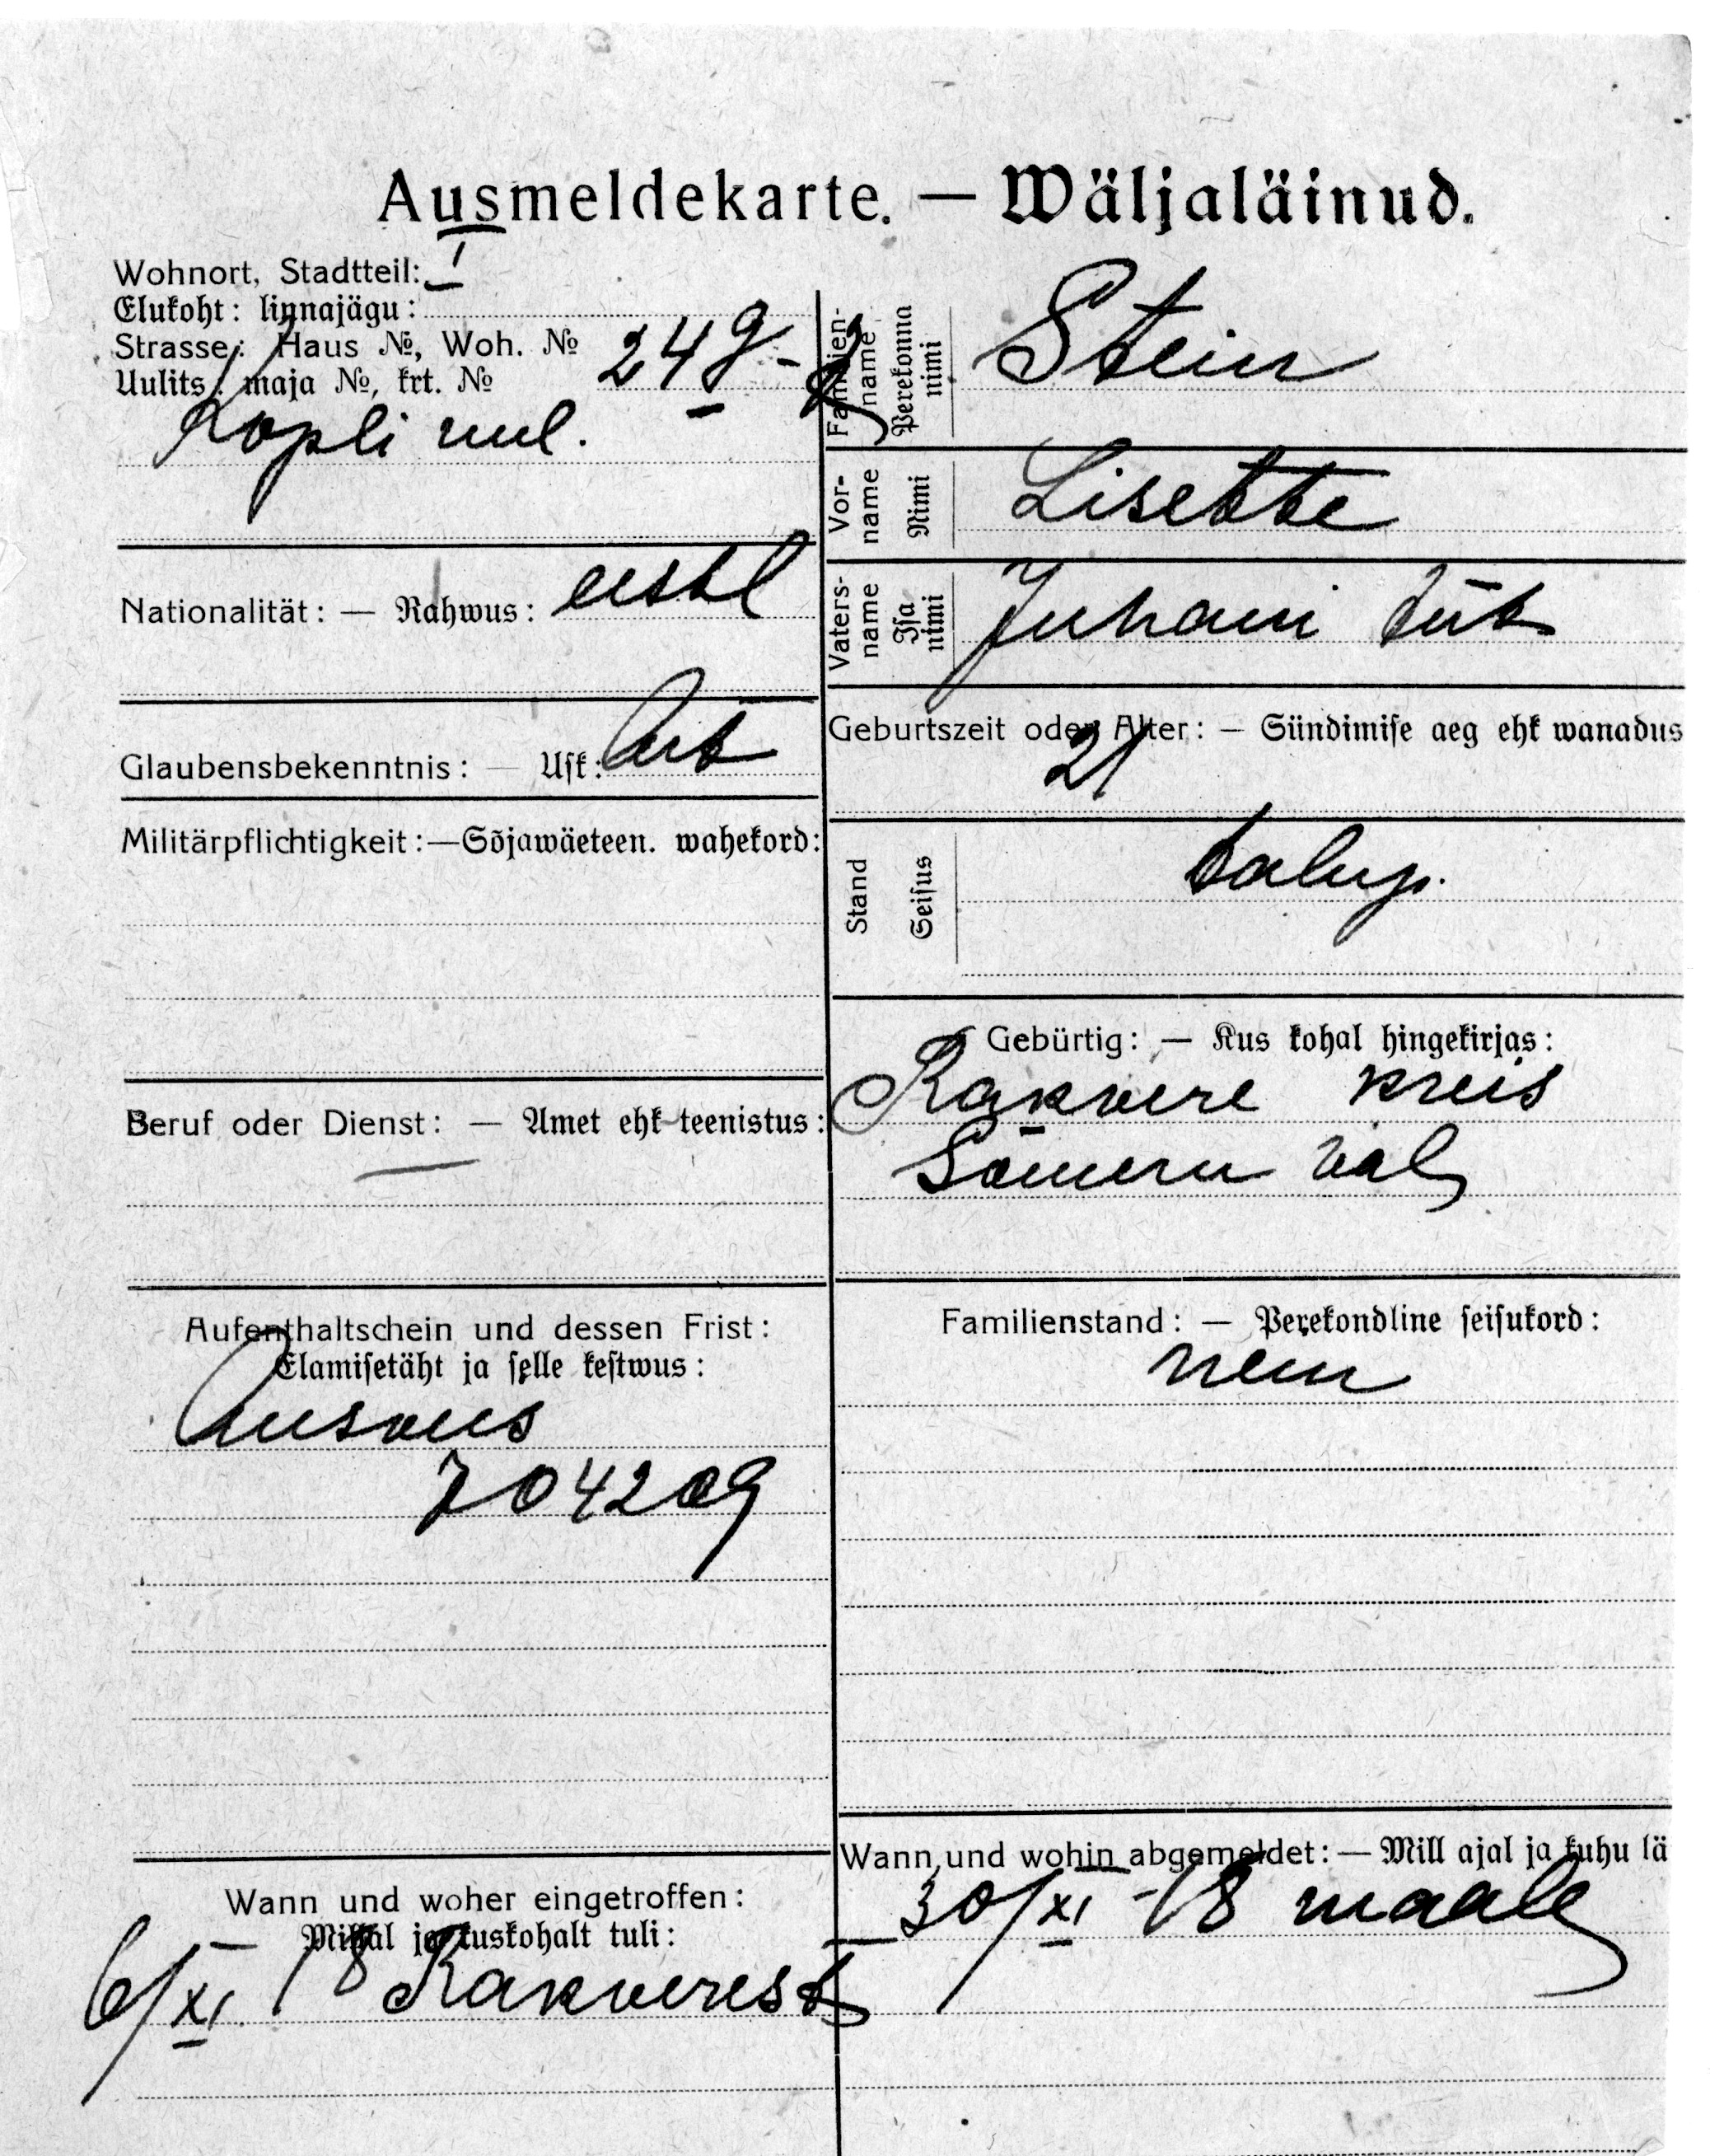 Ausmeldekarte. — Wäljaläinud.
Wohnort, Stadtteil: I
Elukoht: linnajägu:
Strasse: Haus №, Woh. №
Uulits: maja №, krt. № 249-
Kopli uul.
Nationalität: — Rahwus: eestl
Glaubensbekenntnis: — Usk: Lut
Militärpflichtigkeit:—Sõjawäeteen. wahekord:
Beruf oder Dienst: — Amet ehk teenistus:
—
Aufenthaltschein und dessen Frist:
Elamisetäht ja selle kestwus:
Ausweis
704209
Wann und woher eingetroffen:
Mill ajal ja kuskohalt tuli:
6/XI 18 Rakverest
Familien-name Perekonna nimi Stein
Vor-name Nimi Lisette
Vaters-name Isa nimi Juhani tüt
Geburtszeit oder Alter: — Sündimise aeg ehk wanadus
21
Stand Seisus talup.
Gebürtig: — Kus kohal hingekirjas:
Rakvere kreis
Sömeru val
Familienstand: — Perekondline seisukord:
nein
Wann und wohin abgemeldet: — Mill ajal ja kuhu lä
30/XI -18 maale